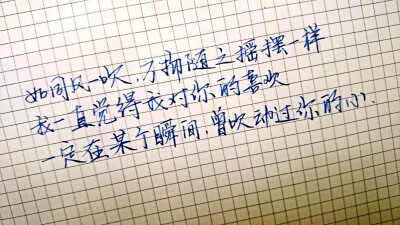 如同风一吹,万物随之摇摆一样
我一直觉得我对你的喜欢
一定在某个瞬间,曾吹动过你的心.